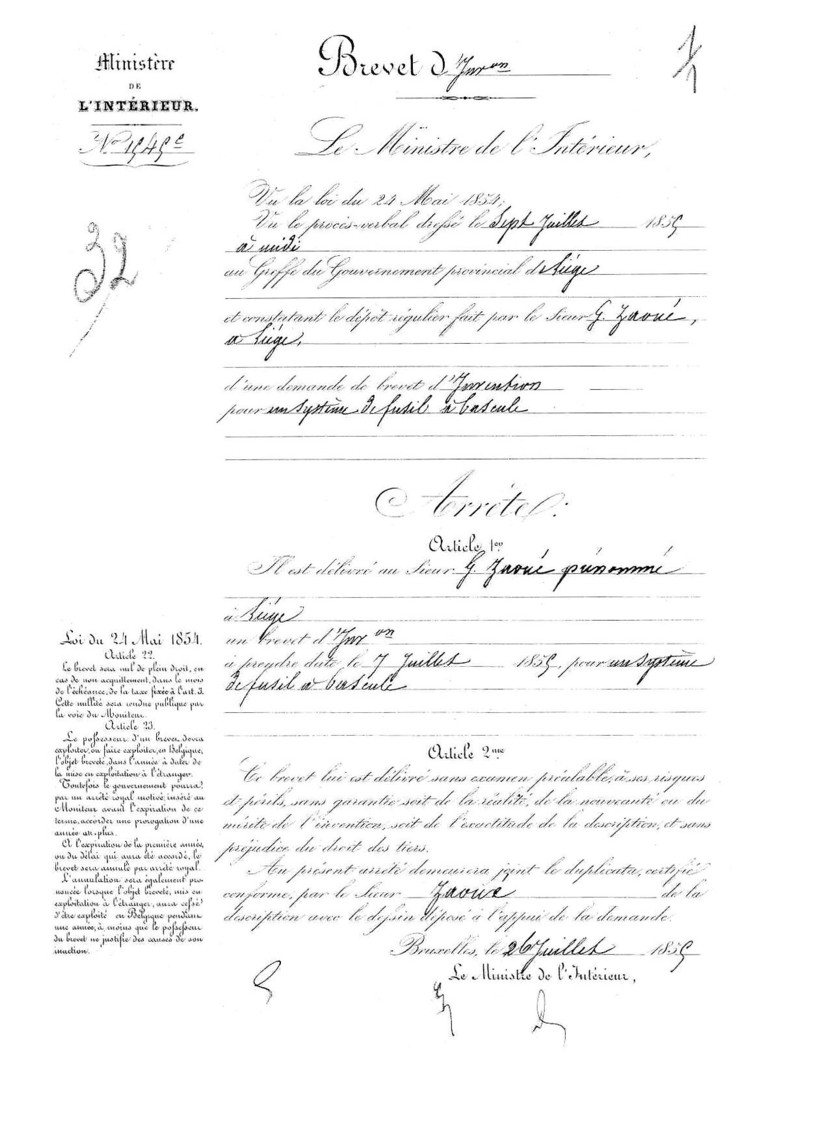 Ministère
DE
L'INTÉRIEUR.
32
Brevet d'Inv on
Le Ministre de l'Intérieur,
Vu la loi du 24 Mai 1854;
Vu le procès-verbal dressé le Sept Juillet 1855
à midi
au Greffe du Gouvernement provincial de Liége
et constatant le dépôt régulier fait par le Sieur G. Zaoué,
à Liége,
d'une demande de brevet d'Invention
pour un système de fusil à bascule
Arrête:
Article 1er
Il est délivré au Sieur G. Zaoué prénommé
à Liége
un brevet d'Inv on
à prendre date le 7 Juillet 1855, pour un système
de fusil à bascule
Article 2me
Ce brevet lui est délivré sans examen préalable, à ses risques
et périls, sans garantie soit de la réalité, de la nouveauté ou du
mérite de l'invention, soit de l'exactitude de la description, et sans
préjudice du droit des tiers.
Au présent arrêté demeurera joint le duplicata, certifié
conforme, par le Sieur Zaoué de la
description avec le dessin déposé à l'appui de la demande.
Bruxelles, le 26 Juillet 1855
Le Ministre de l'Intérieur,
Loi du 24 Mai 1854.
Article 22.
Le brevet sera nul de plein droit, en
cas de non acquittement, dans le mois
de l'échéance, de la taxe fixée à l'art. 3.
Cette nullité sera rendue publique par
la voie du Moniteur.
Article 23.
Le possesseur d'un brevet devra
exploiter, ou faire exploiter, en Belgique,
l'objet breveté, dans l'année à dater de
la mise en exploitation à l'étranger.
Toutefois le gouvernement pourra,
par un arrêté royal motivé, inséré au
Moniteur avant l'expiration de ce
terme, accorder une prorogation d'une
année au plus.
A l'expiration de la première année,
ou du délai qui aura été accordé, le
brevet sera annulé par arrêté royal.
L'annulation sera également pro-
noncée lorsque l'objet breveté, mis en
exploitation à l'étranger, aura cessé
d'être exploité en Belgique pendant
une année, à moins que le possesseur
du brevet ne justifie des causes de son
inaction.